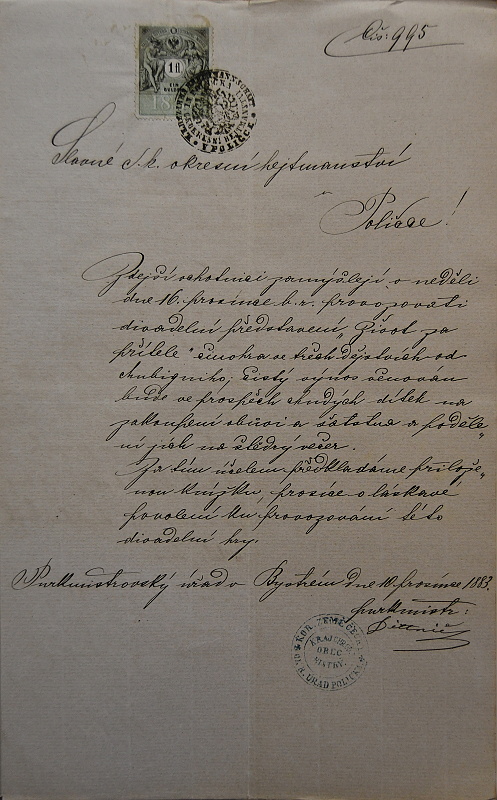 Čís: 995
1 fl
Slavné c. k. okresní hejtmanství
V POLIČCE
Poličce!
Zdejší ochotníci zamýšlejí v neděli
dne 16. prosince b. r. provozovati
divadelní představení „Život za
přítele" činohra ve třech dějstvích od
čistý výnos věnován
bude ve prospěch chudých dítek na
zakoupení obuvi a šatstva a poděle„
ní jich na štědrý večer.
Za tím účelem předkládáme přilože„
nou knížku, prosíce o láskavé
povolení ku provozování této
divadelní hry.
Purkmistrovský úřad v Bystrém dne 10. prosince 1883.
purkmistr:
OBEC